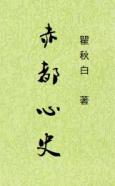 瞿秋白 著
赤都心史